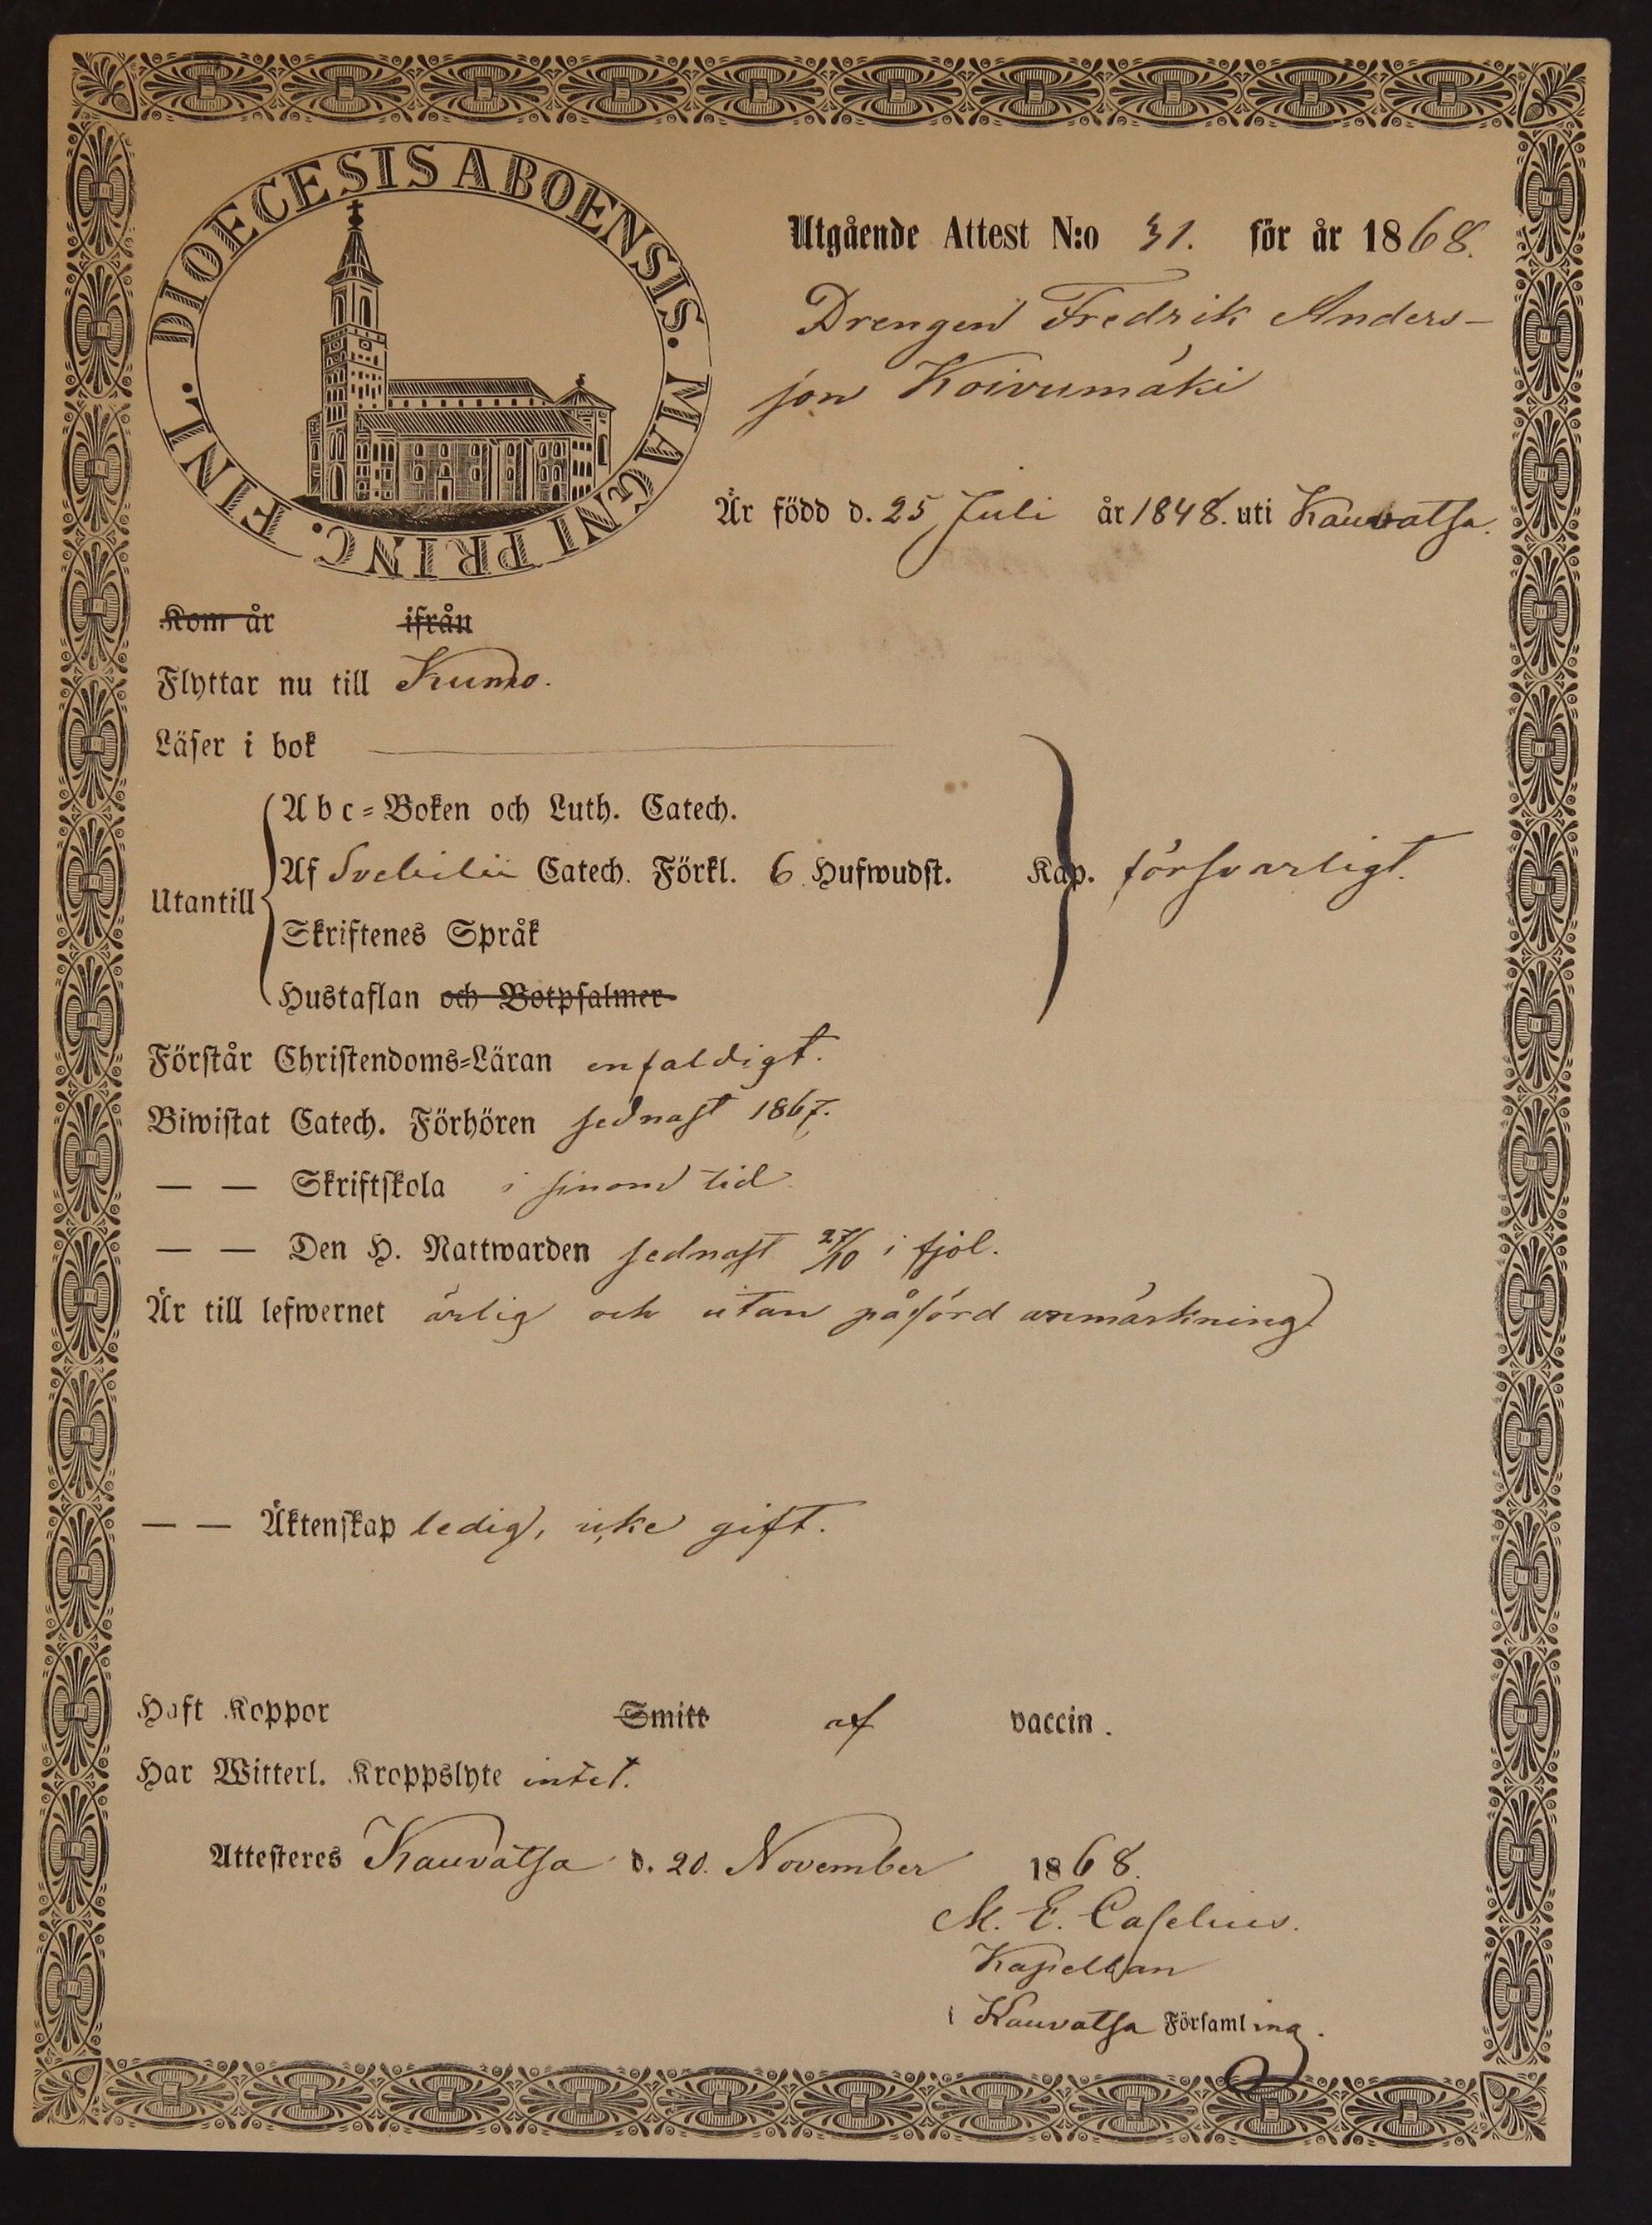 DIOECESIS ABOENSIS. MAGNI PRINC. FINL.
Utgående Attest N:o 31. för år 1868.
Drengen Fredrik Anders-
son Koivumäki
Är född d. 25 Juli år 1848. uti Kauvatsa.
Kom år ifrån
Flyttar nu till Kumo.
Läser i bok
Utantill
Abc-Boken och Luth. Catech.
Af Svebilii Catech. Förkl. 6 Hufwudst. Kap. försvarligt.
Skriftenes Språk
Hustaflan och Botpsalmer
Förstår Christendoms-Läran enfaldigt.
Biwistat Catech. Förhören sednast 1867.
— — Skriftskola i sinom tid.
— — Den H. Nattwarden sednast 27/10 i fjol.
Är till lefwernet ärlig och utan påförd anmärkning.
— — Äktenskap ledig, icke gift.
Haft Koppor Smitt af vaccin.
Har Witterl. Kroppslyte intet.
Attesteres Kauvatsa d. 20. November 1868.
M. E. Caselius.
Kapellan
i Kauvatsa Församling.